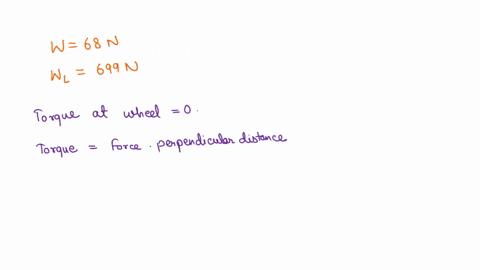 W = 68 N
W_L = 699 N
Torque at wheel = 0.
Torque = Force . perpendicular distance